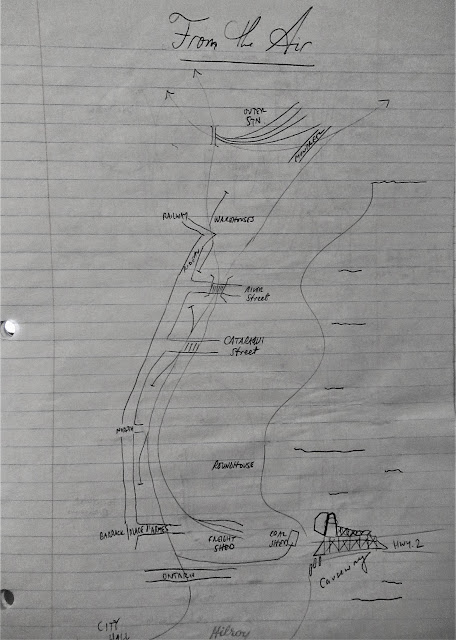 From the Air
OUTER
STN
MONTREAL
RAILWAY
WAREHOUSES
RIVER
Street
CATARAQUI
Street
NORTH
ROUNDHOUSE
BARRACK
PLACE D'ARMES
FREIGHT
SHED
COAL
SHED
HWY. 2
Causeway
ONTARIO
CITY
HALL
Hilroy